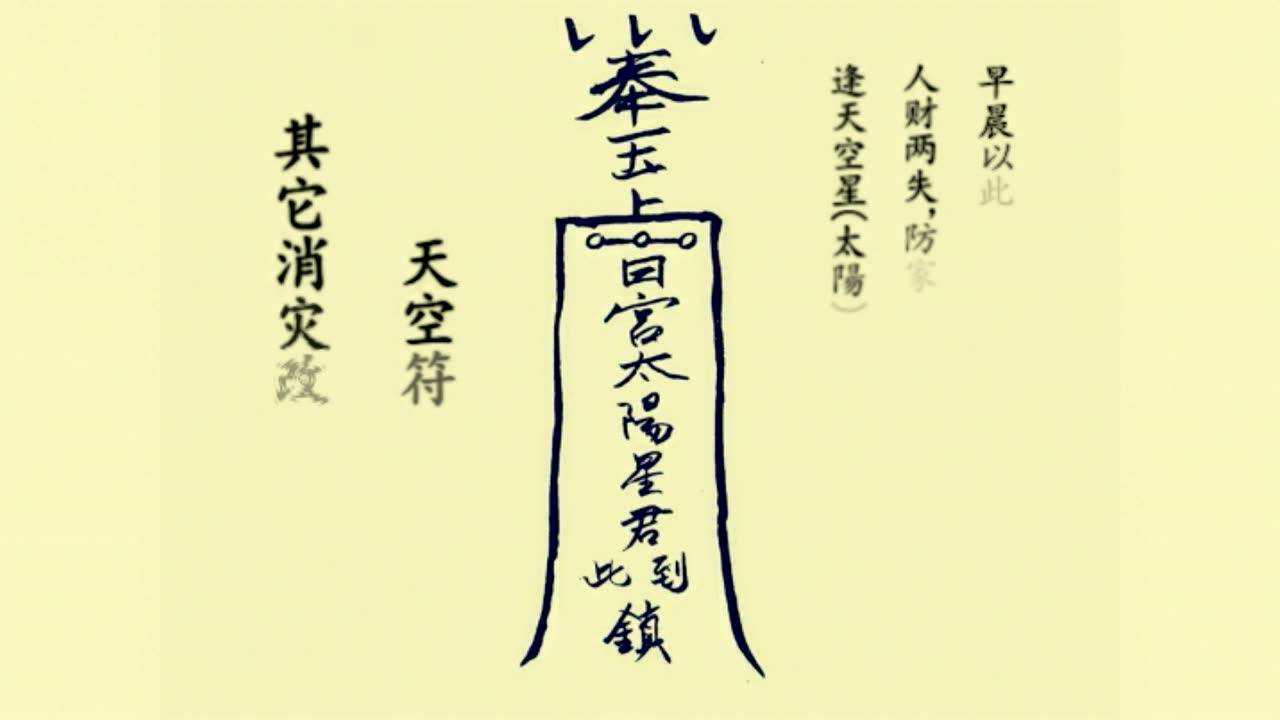 早晨以此
人财两失，防家
逢天空星(太陽)
奉玉上日宮太陽星君到此鎮
天空符
其它消灾改